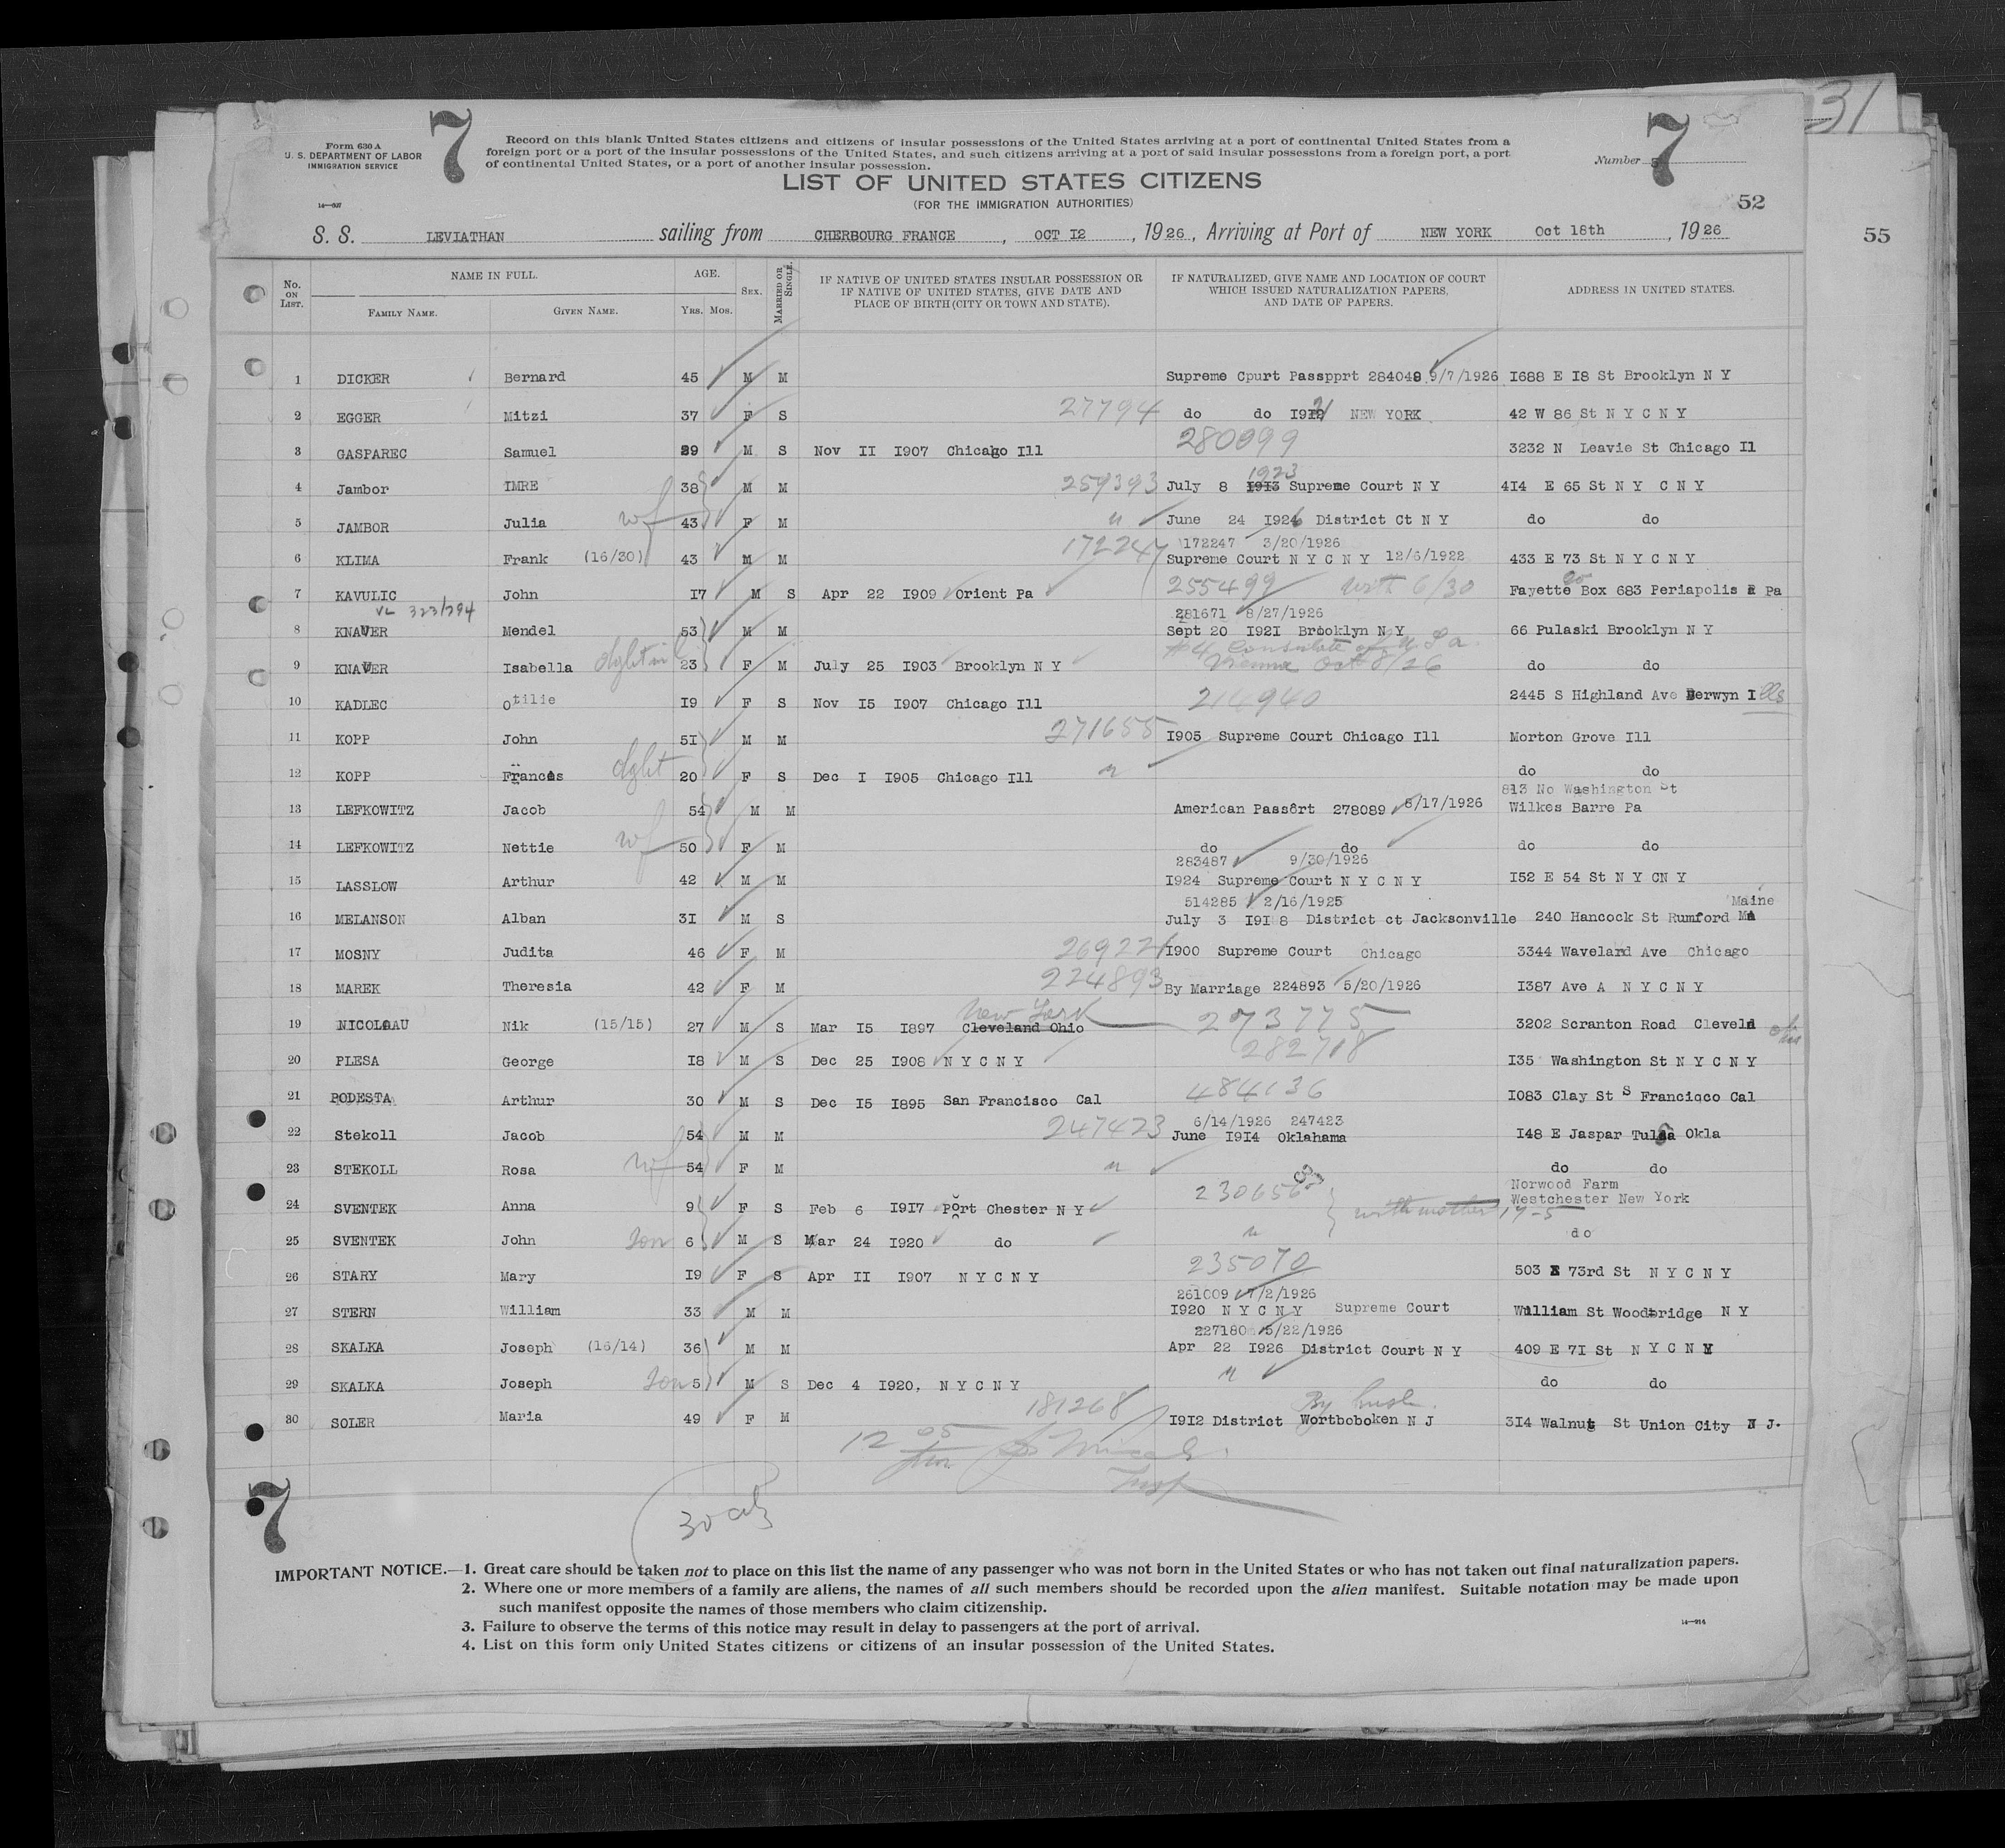 31
Form 630 A
U. S. DEPARTMENT OF LABOR
IMMIGRATION SERVICE
14—607
7
Record on this blank United States citizens and citizens of insular possessions of the United States arriving at a port of continental United States from a
foreign port or a port of the insular possessions of the United States, and such citizens arriving at a port of said insular possessions from a foreign port, a port
of continental United States, or a port of another insular possession.
7
Number
LIST OF UNITED STATES CITIZENS
(FOR THE IMMIGRATION AUTHORITIES)
52
55
S. S. LEVIATHAN sailing from CHERBOURG FRANCE, OCT I2, 1926, Arriving at Port of NEW YORK Oct 18th, 1926
No. ON LIST. NAME IN FULL. AGE. SEX. MARRIED OR SINGLE. IF NATIVE OF UNITED STATES INSULAR POSSESSION OR IF NATIVE OF UNITED STATES, GIVE DATE AND PLACE OF BIRTH (CITY OR TOWN AND STATE). IF NATURALIZED, GIVE NAME AND LOCATION OF COURT WHICH ISSUED NATURALIZATION PAPERS, AND DATE OF PAPERS. ADDRESS IN UNITED STATES.
FAMILY NAME. GIVEN NAME. YRS. MOS.
1 DICKER Bernard 45 M M Supreme Cpurt Passpprt 284048 9/7/1926 I688 E I8 St Brooklyn N Y
2 EGGER Mitzi 37 F S 27794 do do NEW YORK 42 W 86 St N Y C N Y
3 GASPAREC Samuel 29 M S Nov II I907 Chicago Ill 280099 3232 N Leavie St Chicago Il
1923
4 Jambor IMRE 38 M M 259393 July 8 I913 Supreme Court N Y 4I4 E 65 St N Y C N Y
5 JAMBOR Julia wf 43 F M " June 24 I926 District Ct N Y do do
172247 3/20/1926
6 KLIMA Frank (16/30) 43 M M 172247 Supreme Court N Y C N Y 12/6/1922 433 E 73 St N Y C N Y
7 KAVULIC John I7 M S Apr 22 I909 Orient Pa 255499 with 6/30 Fayette Co Box 683 Periapolis Pa
VL 323/294
281671 8/27/1926
8 KNAUER Mendel 53 M M Sept 20 I92I Brooklyn N Y 66 Pulaski Brooklyn N Y
#4 Consulate of U S a
9 KNAUER Isabella dght in l 23 F M July 25 I903 Brooklyn N Y Vienna Oct 8/26 do do
10 KADLEC Otilie I9 F S Nov I5 I907 Chicago Ill 214940 2445 S Highland Ave Berwyn Ills
11 KOPP John 5I M M 271655 I905 Supreme Court Chicago Ill Morton Grove Ill
12 KOPP Frances dght 20 F S Dec I I905 Chicago Ill " do do
813 No Washington St
13 LEFKOWITZ Jacob 54 M M American Passêrt 278089 8/17/1926 Wilkes Barre Pa
14 LEFKOWITZ Nettie wf 50 F M do do do do
283487 9/30/1926
15 LASSLOW Arthur 42 M M I924 Supreme Court N Y C N Y I52 E 54 St N Y CN Y
514285 2/16/1925 Maine
16 MELANSON Alban 3I M S July 3 I9I8 District ct Jacksonville 240 Hancock St Rumford
17 MOSNY Judita 46 F M 269221 I900 Supreme Court Chicago 3344 Waveland Ave Chicago
18 MAREK Theresia 42 F M 224893 By Marriage 224893 5/20/1926 I387 Ave A N Y C N Y
New York
19 NICOLAAU Nik (15/15) 27 M S Mar I5 I897 Cleveland Ohio 273775 3202 Scranton Road Cleveld Ohio
20 PLESA George I8 M S Dec 25 I908 N Y C N Y 282718 I35 Washington St N Y C N Y
21 PODESTA Arthur 30 M S Dec I5 I895 San Francisco Cal 484136 I083 Clay St S Francisco Cal
6/14/1926 247423
22 Stekoll Jacob 54 M M 247423 June I9I4 Oklahama I48 E Jaspar Tulsa Okla
23 STEKOLL Rosa wf 54 F M " do do
Norwood Farm
Westchester New York
24 SVENTEK Anna 9 F S Feb 6 I9I7 Port Chester N Y 230656 with mother 17-5
25 SVENTEK John Son 6 M S Mar 24 I920 do " do
26 STARY Mary I9 F S Apr II I907 N Y C N Y 235070 503 E 73rd St N Y C N Y
261009 7/2/1926
27 STERN William 33 M M I920 N Y C N Y Supreme Court William St Woodbridge N Y
227180 5/22/1926
28 SKALKA Joseph (16/14) 36 M M Apr 22 I926 District Court N Y 409 E 7I St N Y C N Y
29 SKALKA Joseph Son 5 M S Dec 4 I920, N Y C N Y " do do
By husb.
30 SOLER Maria 49 F M 181268 I9I2 District Wortboboken N J 3I4 Walnut St Union City N J.
12 05
Insp
30
7
IMPORTANT NOTICE.—1. Great care should be taken not to place on this list the name of any passenger who was not born in the United States or who has not taken out final naturalization papers.
2. Where one or more members of a family are aliens, the names of all such members should be recorded upon the alien manifest. Suitable notation may be made upon
such manifest opposite the names of those members who claim citizenship.
3. Failure to observe the terms of this notice may result in delay to passengers at the port of arrival.
4. List on this form only United States citizens or citizens of an insular possession of the United States.
14—914